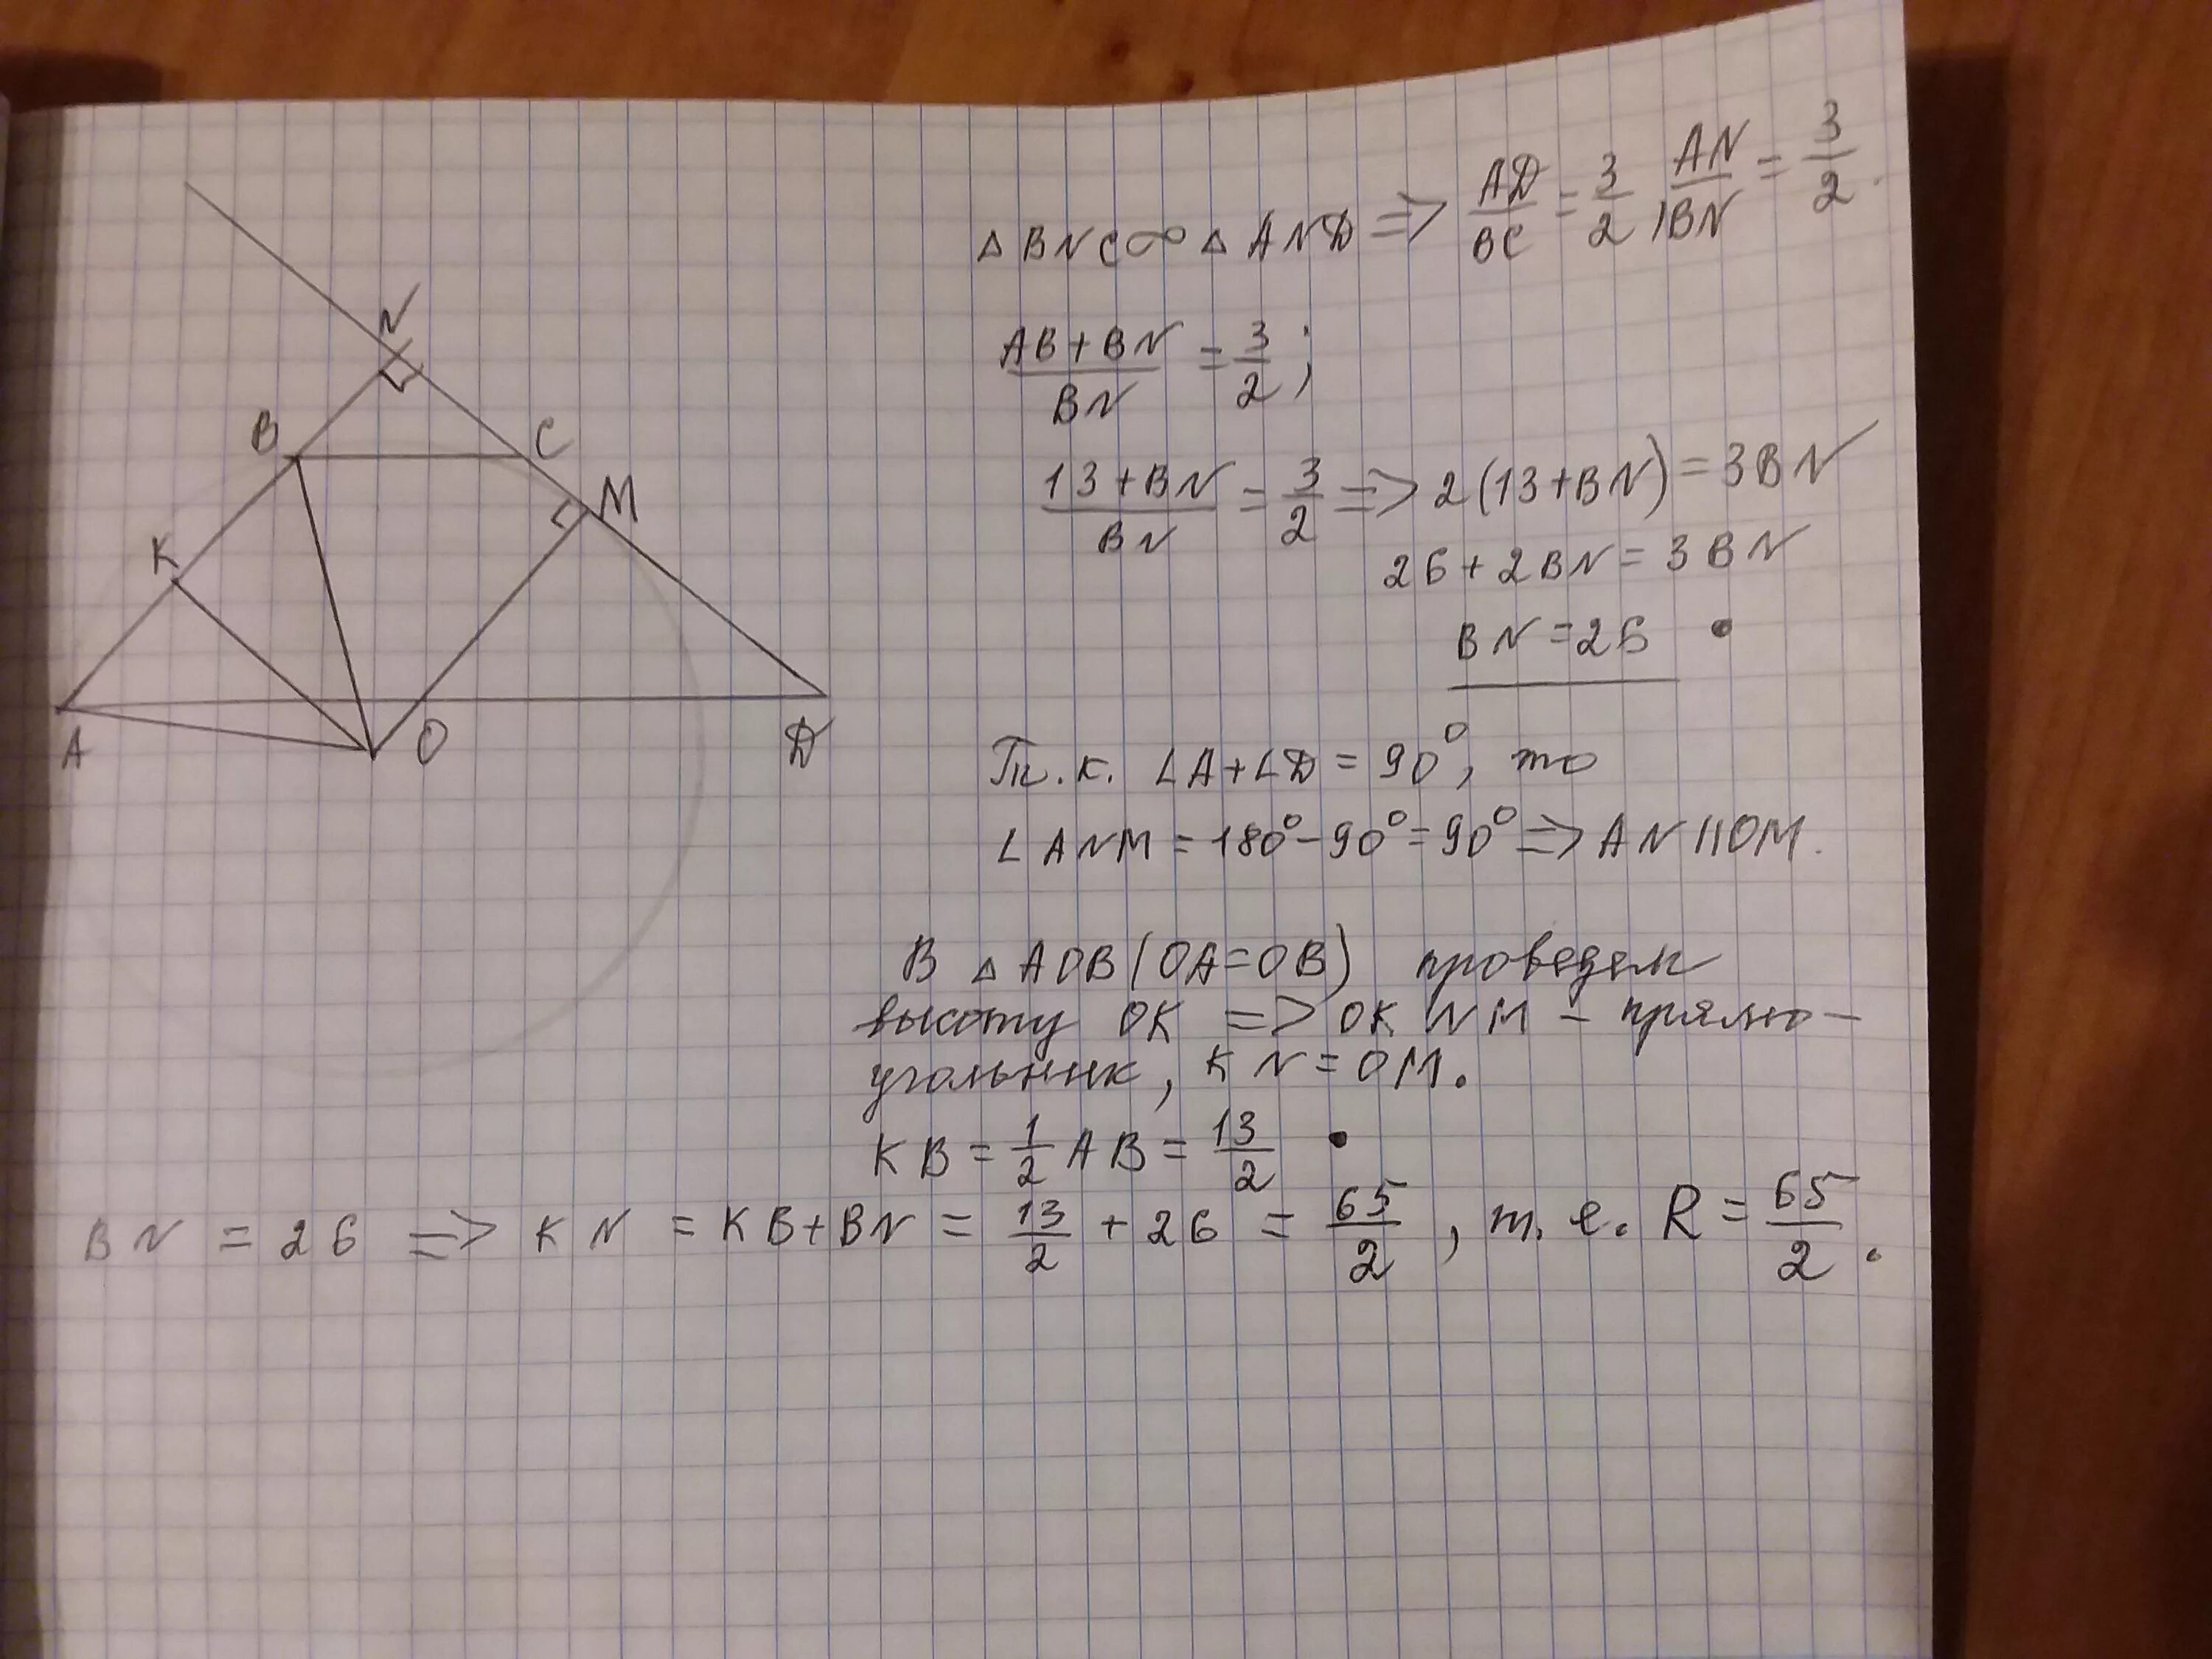 N
B
C
M
K
A
O
D
△BNC∞△AND => AD/BC = 3/2, AN/BN = 3/2.
(AB+BN)/BN = 3/2;
(13+BN)/BN = 3/2 => 2(13+BN)=3BN
26+2BN=3BN
BN=26
Т.к. ∠A+∠D=90°, то
∠ANM=180°-90°=90° => AN||OM.
В △AOB(OA=OB) проведем
высоту OK => OKNM - прямо-
угольник, KN=OM.
KB=1/2 AB=13/2
BN=26 => KN=KB+BN=13/2+26=65/2, т.е. R=65/2.